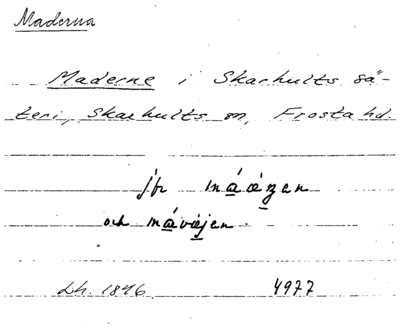 Maderna
Maderne i Skarhults sä-
teri, Skarhults sn, Frosta hd.
jfr
och
Lh. 1846. 4977